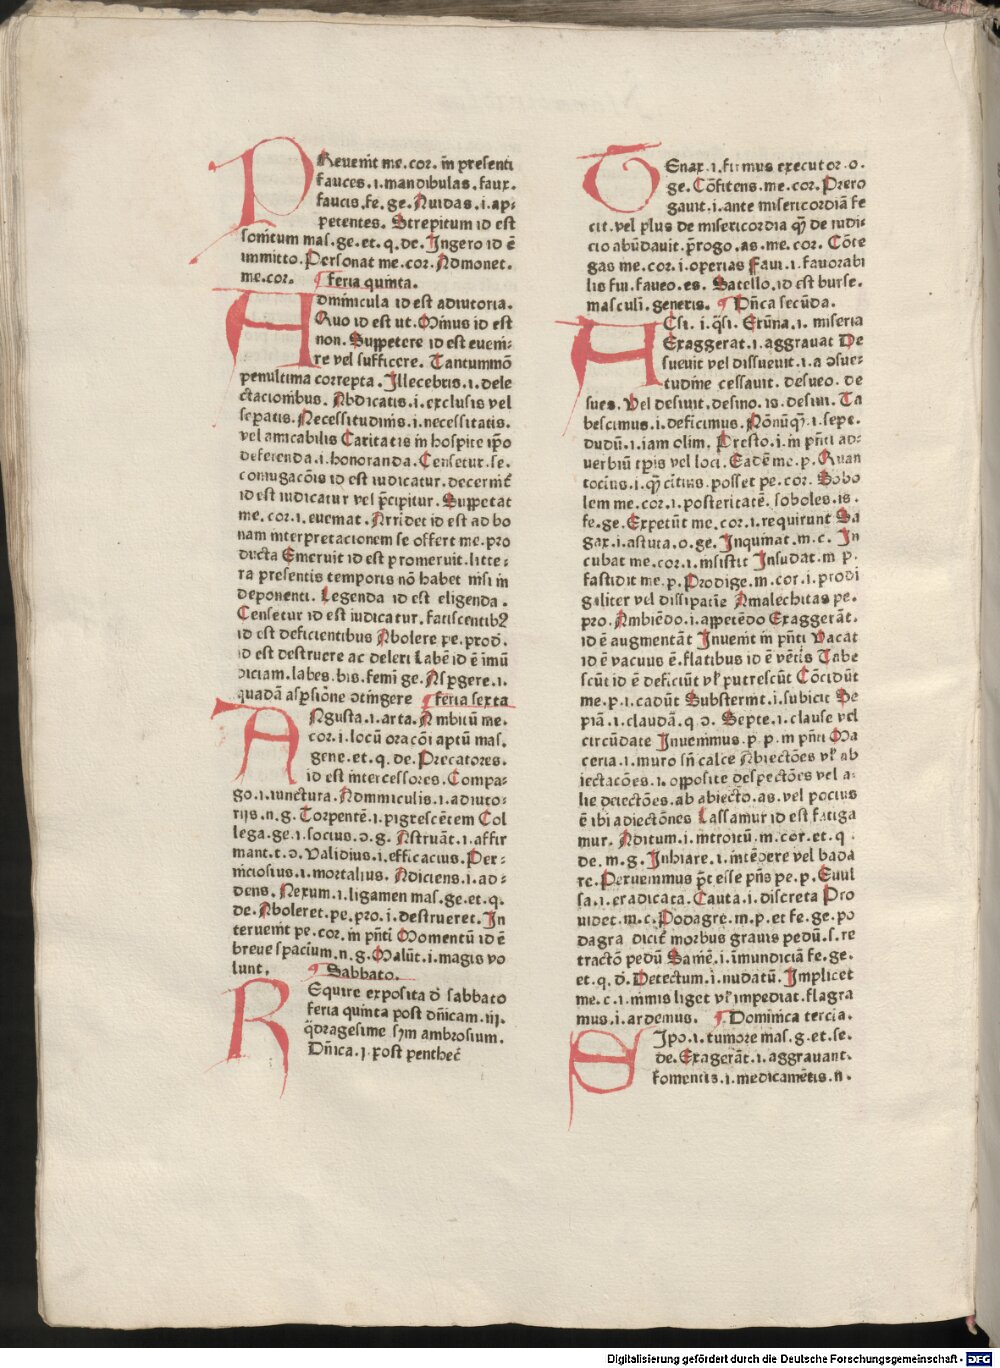 PRevenit me.cor. in presenti
fauces.i.mandibulas.faux.
faucis.fe.ge. Auidas.i.ap⸗
petentes. Strepitum id est
sonitum mas.ge.et.q.de. Ingero id ē
immitto. Personat me.cor. Admonet.
me.cor. ¶ feria quinta.
ADminicula id est adiutoria.
Quo id est ut. Minus id est
non. Suppetere id est eueni⸗
re vel sufficere. Tantummō
penultima correpta. Illecebris.i.dele
ctacionibus. Abdicatis.i.exclusis vel
sepatis. Necessitudinis.i.necessitatis.
vel amicabilis Caritatis in hospite ipo
deferenda.i.honoranda. Censetur.se.
coniugacōis id est iudicatur. decernit
id est iudicatur vel pcipitur. Suppetat
me.cor.i.eueniat. Arridet id est ad bo
nam interpretacionem se offert me.pro
ducta Emeruit id est promeruit. litte⸗
ra presentis temporis nō habet nisi in
deponenti. Legenda id est eligenda.
Censetur id est iudicatur. fatiscentibꝫ
id est deficientibus Abolere pe.prod.
id est destruere ac deleri Labē id ē imū
diciam.labes.bis.femi ge. Aspgere.i.
quadā aspsiōne ꝯtingere ¶ feria sexta
ANgusta.i.arta. Ambitū me.
cor.i.locū oracōi aptū mas.
gene.et.q.de. Precatores.
id est intercessores. Compa⸗
go.i.iunctura. Adminiculis.i.adiuto⸗
rijs.n.g. Torpentē.i.pigrescētem Col
lega.ge.i.socius.ꝯ.g. Astruāt.i.affir
mant.t.ꝯ. Validius.i.efficacius. Per⸗
niciosius.i.mortalius. Adiciens.i.ad⸗
dens. Nexum.i.ligamen mas.ge.et.q.
de. Aboleret.pe.pro.i.destrueret. In
teruenit pe.cor. in pnti Momentū id ē
breue spacium.n.g. Malūt.i.magis vo
lunt. ¶ Sabbato.
REquire exposita ꝺ sabbato
feria quinta post dnicam.iij.
qdragesime scdm ambrosium.
Dnica.j.post penthec
TEnax.i.firmus executor.o.
ge. Cōfitens.me.cor. Prero
gauit.i.ante misericordiā fe
cit.vel plus de misericordia qꝫ de iudi⸗
cio abūdauit.progo.as.me.cor. Cōte
gas me.cor.i.operias Faui.i.fauorabi
lis fui.faueo.es. Satello.id est burse.
masculi.generis. ¶ Dnica secūda.
ACsi.i.qsi. Erūna.i.miseria
Exaggerat.i.aggrauat De
sueuit vel dissueuit.i.a ꝯsue⸗
tudine cessauit.desueo.de
sues. Vel desiuit.desino.is.desiui. Ta
bescimus.i.deficimus. Nōnūqꝫ.i.sepe.
dudū.i.iam olim. Presto.i.in pnti ad⸗
uerbiū tpis vel loci. Eadē me.p. Quan
tocius.i.qꝫ citius posset pe.cor. Sobo
lem me.cor.i.posteritatē.soboles.is.
fe.ge. Expetūt me.cor.i.requirunt Sa
gax.i.astuta.o.ge. Inquinat.m.c. In
cubat me.cor.i.insistit Insudat.m p.
fastidit me.p. Prodige.m.cor.i.prodi
galiter vel dissipatie Amalechitas pe.
pro. Ambiēdo.i.appetēdo Exaggerāt.
id ē augmentāt Inuenit in pnti Vacat
id ē vacuus ē.flatibus id ē vētis Tabe
scūt id ē deficiūt vl putrescūt Cōcidūt
me.p.i.cadūt Substernit.i.subicit Se
piā.i.claudā.q ꝯ. Septe.i.clause vel
circūdate Inuenimus.p p.in pnti Ma
ceria.i.muro sn calce Abiectōes vl ab
iectacōes.i.opposite despectōes vel a⸗
lie deiectōes.ab abiecto.as.vel pocius
ē ibi adiectōnes Lassamur id est fatiga
mur. Aditum.i.introitū.m.cor.et.q.
de.m.g. Inhiare.i.intēdere vel bada
re. Peruenimus pt esse pns pe.p. Euul
sa.i.eradicata. Cauta.i.discreta Pro
uidet.m.c. Podagre.m.p.et fe.ge.po
dagra dicit morbus grauis pedū.s.re
tractō pedū Saniē.i.īmundiciā fe.ge.
et.q.ꝺ. Detectum.i.nudatū. Implicet
me.c.i.nimis liget vl impediat.flagra
mus.i.ardemus. ¶ Dominica tercia.
TIpo.i.tumore mas.g.et.se.
de. Exagerāt.i.aggrauant.
fomentis.i.medicamētis.n.
Digitalisierung gefördert durch die Deutsche Forschungsgemeinschaft - DFG